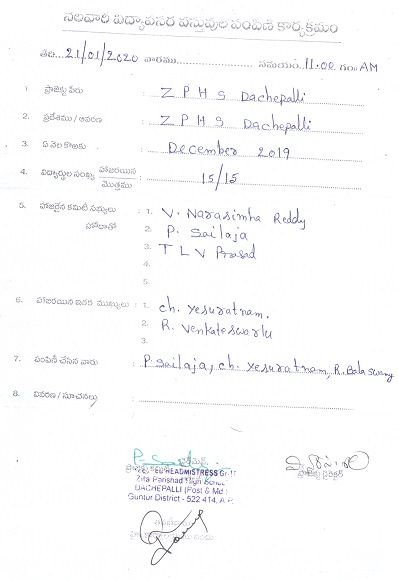 నెలవారి విద్యావసర వస్తువుల పంపిణి కార్యక్రమం
తేది... 21/01/2020 వారము........ సమయం. 11.00 గం: AM
1. ప్రాజెక్టు పేరు : Z P H S Dachepalli
2. ప్రదేశము / ఆవరణ : Z P H S Dachepalli
3. ఏ నెల కొఱకు : December 2019
4. విద్యార్థుల సంఖ్య హాజరయిన / మొత్తము : 15/15
5. హాజరైన కమిటీ సభ్యులు : 1. V. Narasimha Reddy
హోదాతో 2. P. Sailaja
3. T L V Prasad
4.
5.
6. హాజరయిన ఇతర ముఖ్యులు : 1. ch. Yesuratnam.
2. R. Venkateswarlu
3.
7. పంపిణీ చేసిన వారు : P Sailaja, ch. Yesuratnam, R. Bala Swamy
8. వివరణ / సూచనలు :
HEADMISTRESS
Zilla Parishad High School
DACHEPALLI (Post & Md)
Guntur District - 522 414, A.P.
ప్రాజెక్ట్ డైరెక్టర్